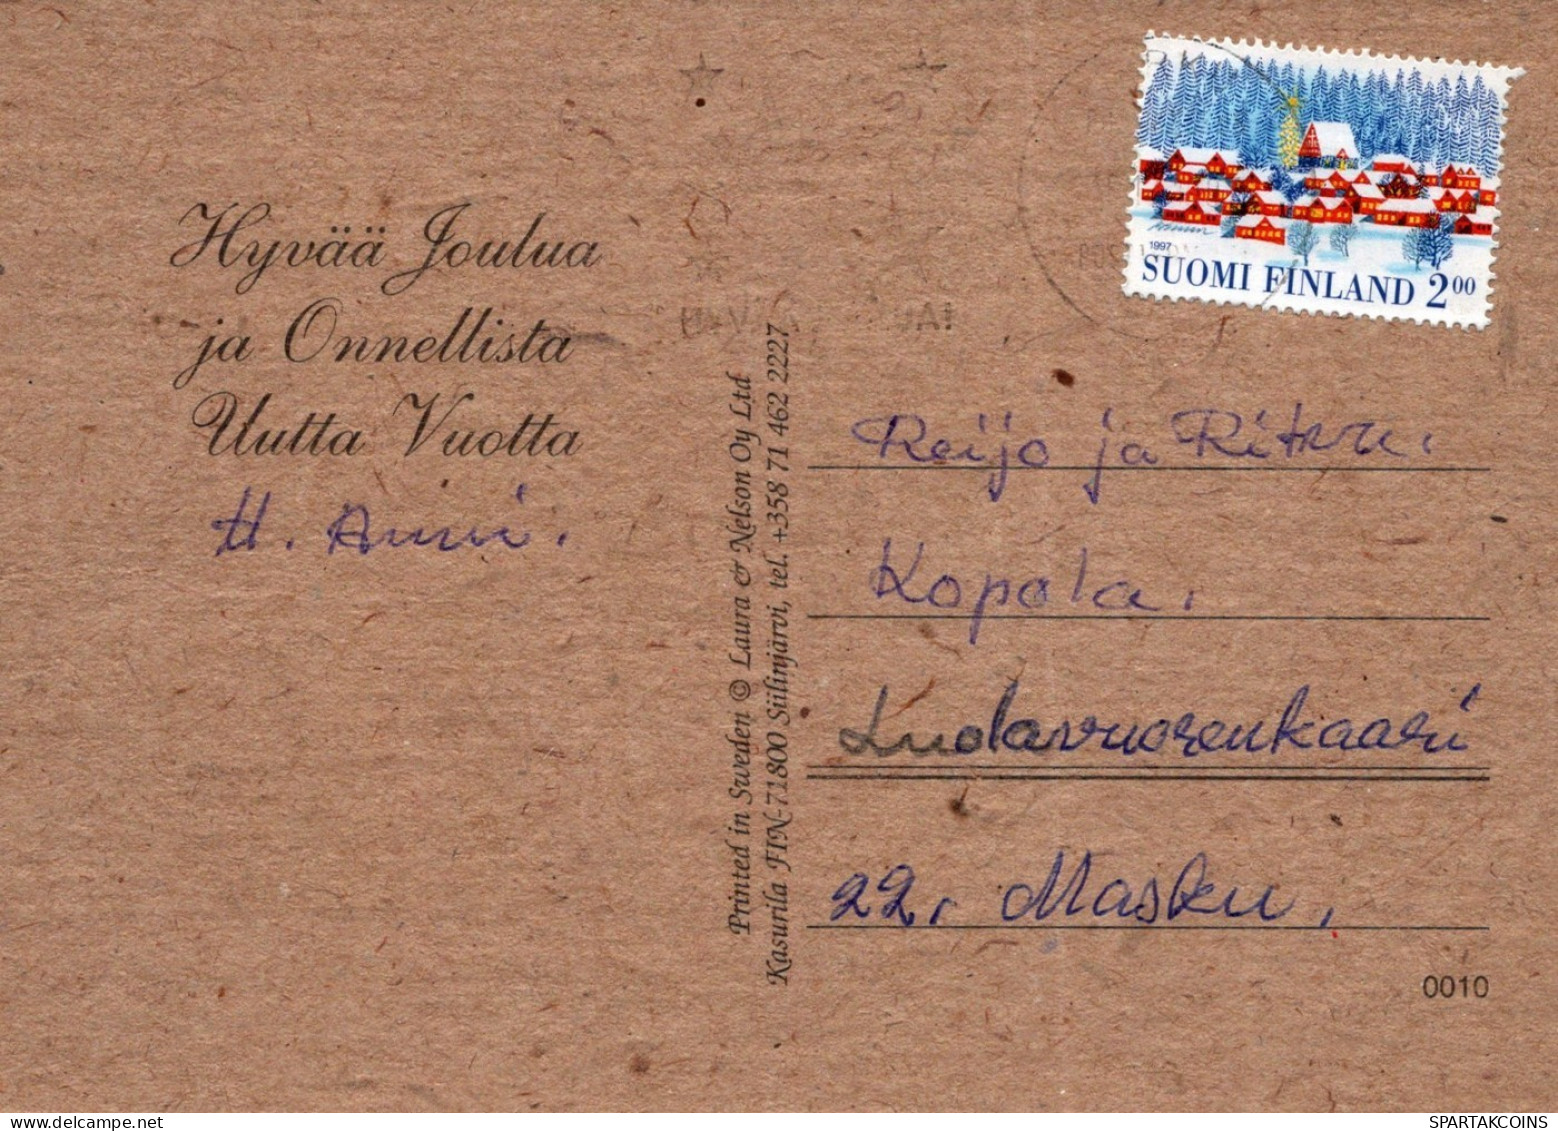 1997
SUOMI FINLAND 2 00
Hyvää Joulua
ja Onnellista
Uutta Vuotta
H. Anni.
Printed in Sweden © Laura & Nelson Oy Ltd
Kasurila FIN-71800 Siilinjärvi, tel. +358 71 462 2227
Reijo ja Ritva.
Kopola.
Luolavuorenkaari
22, Masku,
0010
SPARTAKCOINS